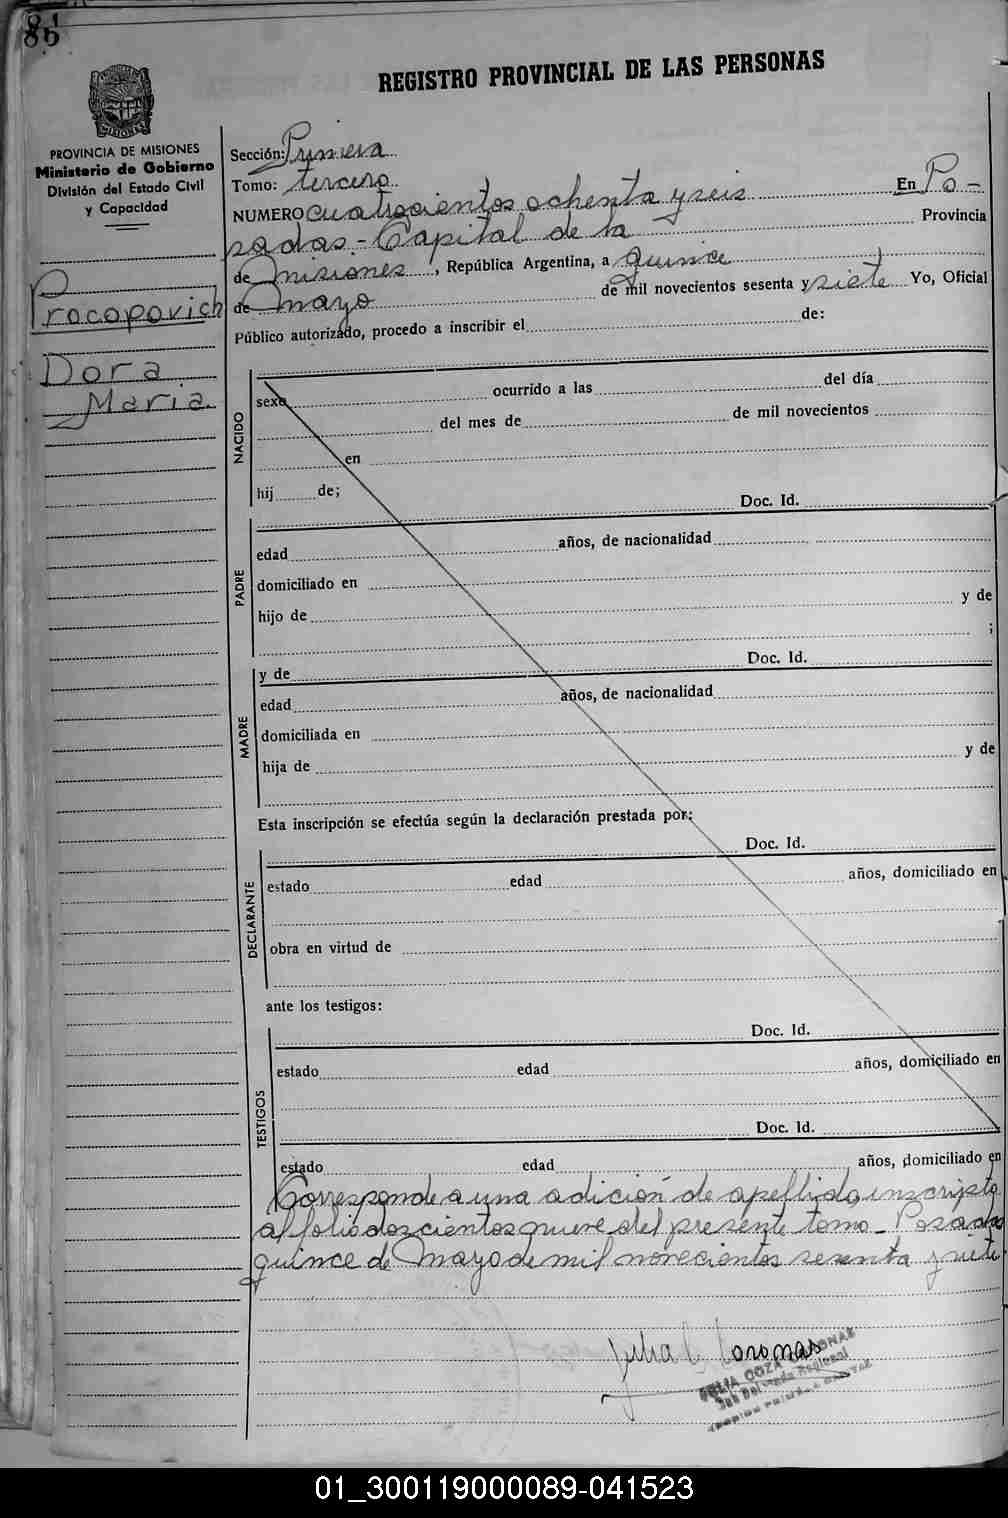 86
REGISTRO PROVINCIAL DE LAS PERSONAS
PROVINCIA DE MISIONES
Ministerio de Gobierno
División del Estado Civil
y Capacidad
Procopovich
Dora
Maria.
Sección: Primera
Tomo: tercero
NUMERO cuatrocientos ochenta y seis En Po-
sadas - Capital de la Provincia
de Misiones, República Argentina, a quince
de mayo de mil novecientos sesenta y siete Yo, Oficial
Público autorizado, procedo a inscribir el de:
NACIDO
sexo ocurrido a las del día
del mes de de mil novecientos
en
hij de;
Doc. Id.
PADRE
edad años, de nacionalidad
domiciliado en
hijo de y de
;
y de Doc. Id.
MADRE
edad años, de nacionalidad
domiciliada en
hija de y de
Esta inscripción se efectúa según la declaración prestada por:
Doc. Id.
DECLARANTE
estado edad años, domiciliado en
obra en virtud de
ante los testigos:
Doc. Id.
TESTIGOS
estado edad años, domiciliado en
Doc. Id.
estado edad años, domiciliado en
Corresponde a una adición de apellido, inscripto
al folio doscientos nueve del presente tomo - Posadas
quince de Mayo de mil novecientos sesenta y siete
Julia C. Coronas
JULIA COZA CORONAS
Sub Delegada Regional
01_300119000089-041523